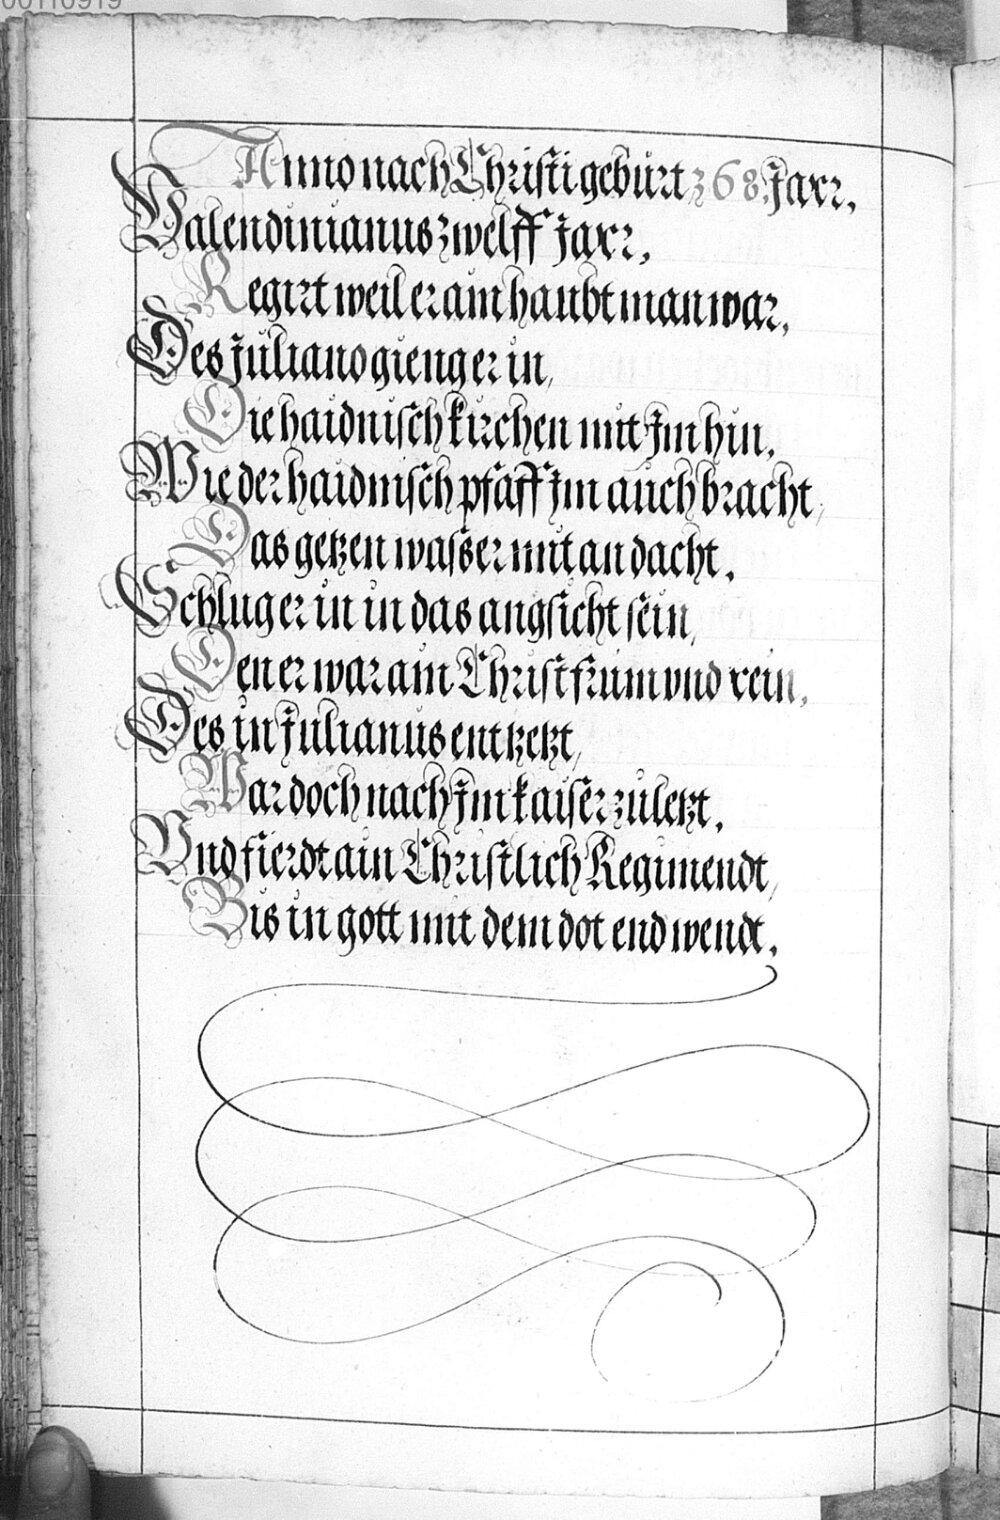 00110919
Anno nach Christi gebürt 368. Jaer,
Valendinianus zwelff Jaer,
Regirt weil er ain haubtman war,
Des Juliano gieng er in,
Die haidnisch kirchen mit Im hin,
Wie der haidnisch pfaff Im auch bracht,
Das getzen wasser mit andacht,
Schlug er in in das angsicht sein,
Den er war ain Christ frum vnd rein,
Des in Julianus entzetzt,
War doch nach Im kaiser zuletzt,
Vnd fierdt ain Christlich Regimendt,
Bis in gott mit dem dot end wendt,